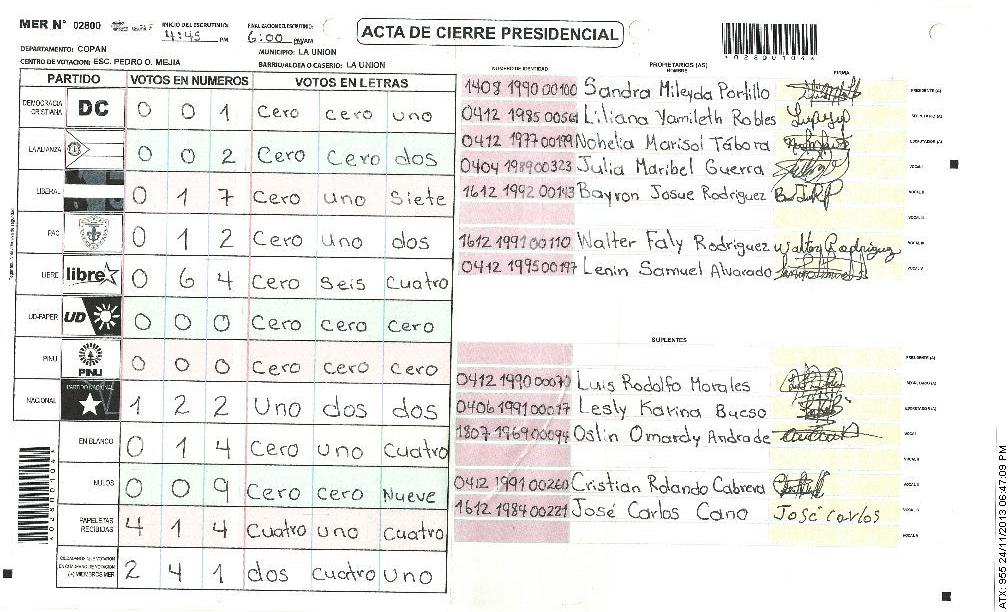 MER N° 02800
INICIO DEL ESCRUTINIO: 4:45 PM
FINALIZACION DEL ESCRUTINIO: 6:00 PM/AM
ACTA DE CIERRE PRESIDENCIAL
DEPARTAMENTO: COPAN
MUNICIPIO: LA UNION
CENTRO DE VOTACION: ESC. PEDRO O. MEJIA
BARRIO/ALDEA O CASERIO: LA UNION
PARTIDO VOTOS EN NUMEROS VOTOS EN LETRAS
DEMOCRACIA CRISTIANA DC 0 0 1 Cero cero uno
LA ALIANZA 0 0 2 Cero Cero dos
LIBERAL 0 1 7 Cero uno Siete
PAC 0 1 2 Cero Uno dos
LIBRE libre 0 6 4 Cero Seis Cuatro
UD-FAPER UD 0 0 0 Cero cero cero
PINU PINU 0 0 0 Cero cero cero
NACIONAL PARTIDO NACIONAL 1 2 2 Uno dos dos
EN BLANCO 0 1 4 Cero uno Cuatro
NULOS 0 0 9 Cero cero Nueve
PAPELETAS RECIBIDAS 4 1 4 Cuatro uno Cuatro
2 4 1 dos Cuatro Uno
NUMERO DE IDENTIDAD PROPIETARIOS (AS) NOMBRE FIRMA
1408 1990 00100 Sandra Mileyda Portillo PRESIDENTE (A)
0412 1985 00561 Liliana Yamileth Robles SECRETARIO (A)
0412 1977 00199 Nohelia Marisol Tábora ESCRUTADOR (A)
0404 1989 00323 Julia Maribel Guerra VOCAL I
1612 1992 00143 Bayron Josue Rodriguez VOCAL II
VOCAL III
1612 1991 00110 Walter Faly Rodriguez Walter Rodriguez VOCAL IV
0412 1995 00197 Lenin Samuel Alvarado VOCAL V
SUPLENTES
PRESIDENTE (A)
0412 1990 00070 Luis Rodolfo Morales SECRETARIO (A)
0406 1991 00017 Lesly Karina Bueso ESCRUTADOR (A)
1807 1969 00094 Oslin Omardy Andrade VOCAL I
VOCAL II
0412 1991 00260 Cristian Rolando Cabrera VOCAL III
1612 1984 00221 José Carlos Cano José Carlos VOCAL IV
VOCAL V
ATX: 955 24/11/2013 06:47:09 PM